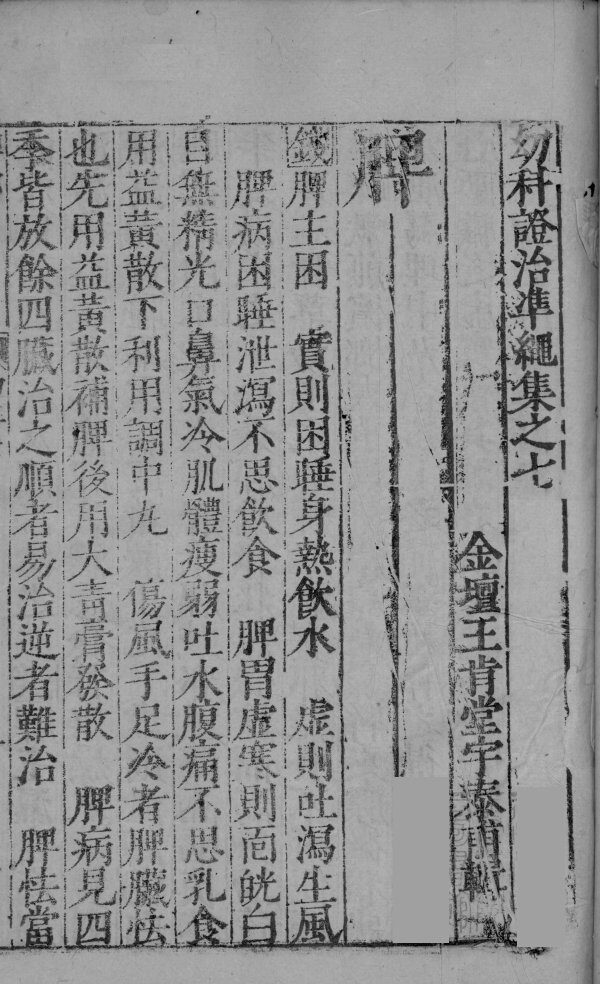 幼科證治準繩集之七
金壇王肯堂宇泰甫輯
脾
錢脾主困　實則困睡身熱飲水　虛則吐瀉生風
脾病困睡泄瀉不思飲食　脾胃虛寒則面㿠白
目無精光口鼻氣冷肌體瘦弱吐水腹痛不思乳食
用益黃散下利用調中丸　傷風手足冷者脾臟怯
也先用益黃散補脾後用大青膏發散　脾病見四
季皆放餘四臟治之順者易治逆者難治　脾怯當